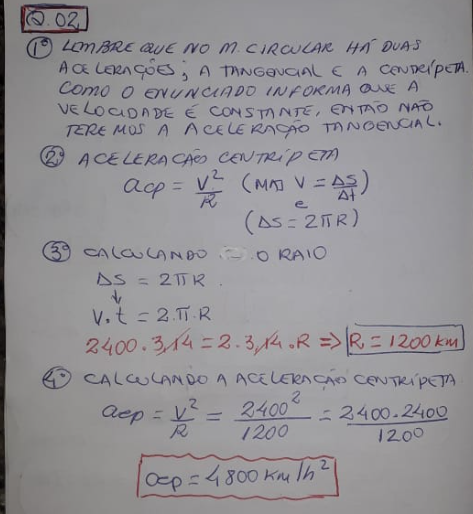 Q.02
1º LEMBRE QUE NO M. CIRCULAR HÁ DUAS
ACELERAÇÕES; A TANGENCIAL E A CENTRÍPETA.
COMO O ENUNCIADO INFORMA QUE A
VELOCIDADE É CONSTANTE, ENTÃO NÃO
TEREMOS A ACELERAÇÃO TANGENCIAL.
2º ACELERAÇÃO CENTRÍPETA
acp = V²/R (MAS V = ΔS/Δt)
e
(ΔS = 2πR)
3º CALCULANDO O RAIO
ΔS = 2πR
↓
V.t = 2.π.R
2400.3,14 = 2.3,14.R => R = 1200 km
4º CALCULANDO A ACELERAÇÃO CENTRÍPETA
acp = V²/R = 2400²/1200 = 2400.2400/1200
acp = 4800 km/h²